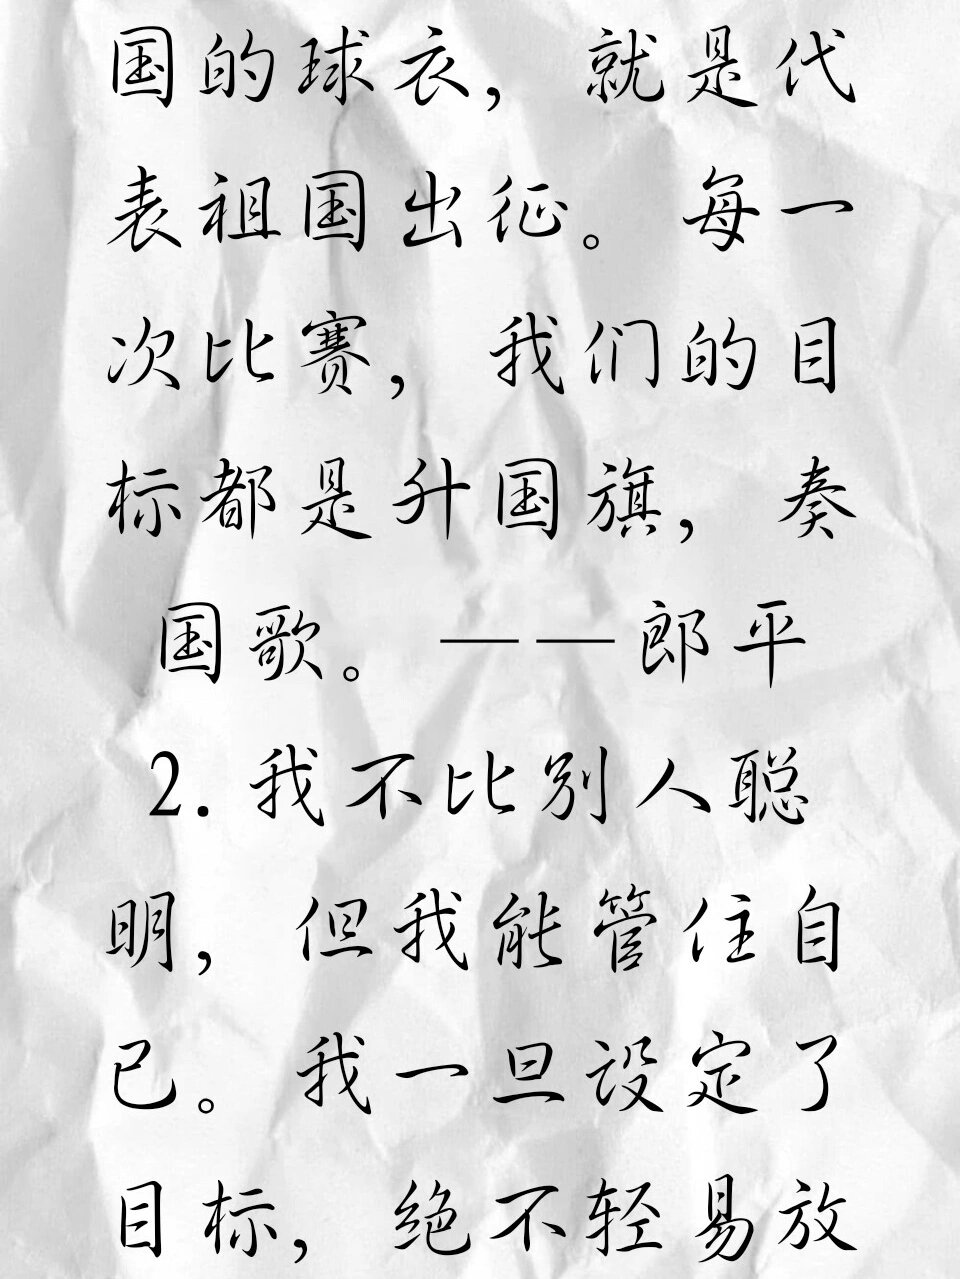 国的球衣，就是代
表祖国出征。每一
次比赛，我们的目
标都是升国旗，奏
国歌。——郎平
2.我不比别人聪
明，但我能管住自
己。我一旦设定了
目标，绝不轻易放